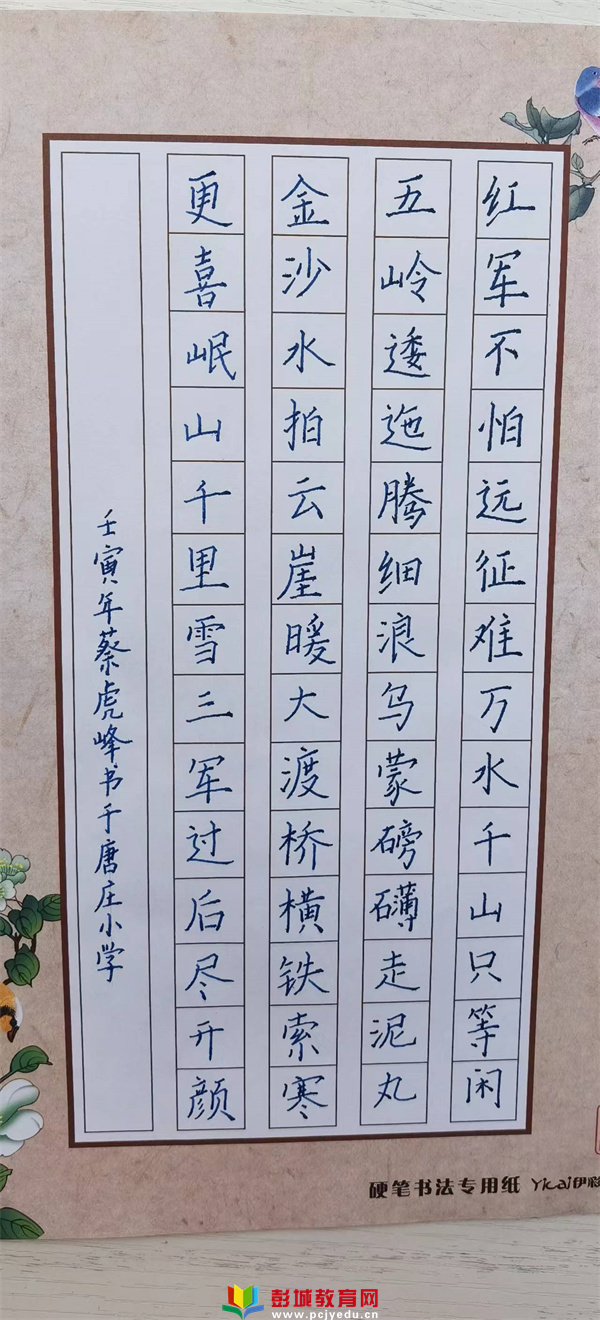 红军不怕远征难万水千山只等闲
五岭逶迤腾细浪乌蒙磅礴走泥丸
金沙水拍云崖暖大渡桥横铁索寒
更喜岷山千里雪三军过后尽开颜
壬寅年蔡虎峰书于唐庄小学
硬笔书法专用纸 Yicai伊彩
彭城教育网
www.pcjyedu.cn